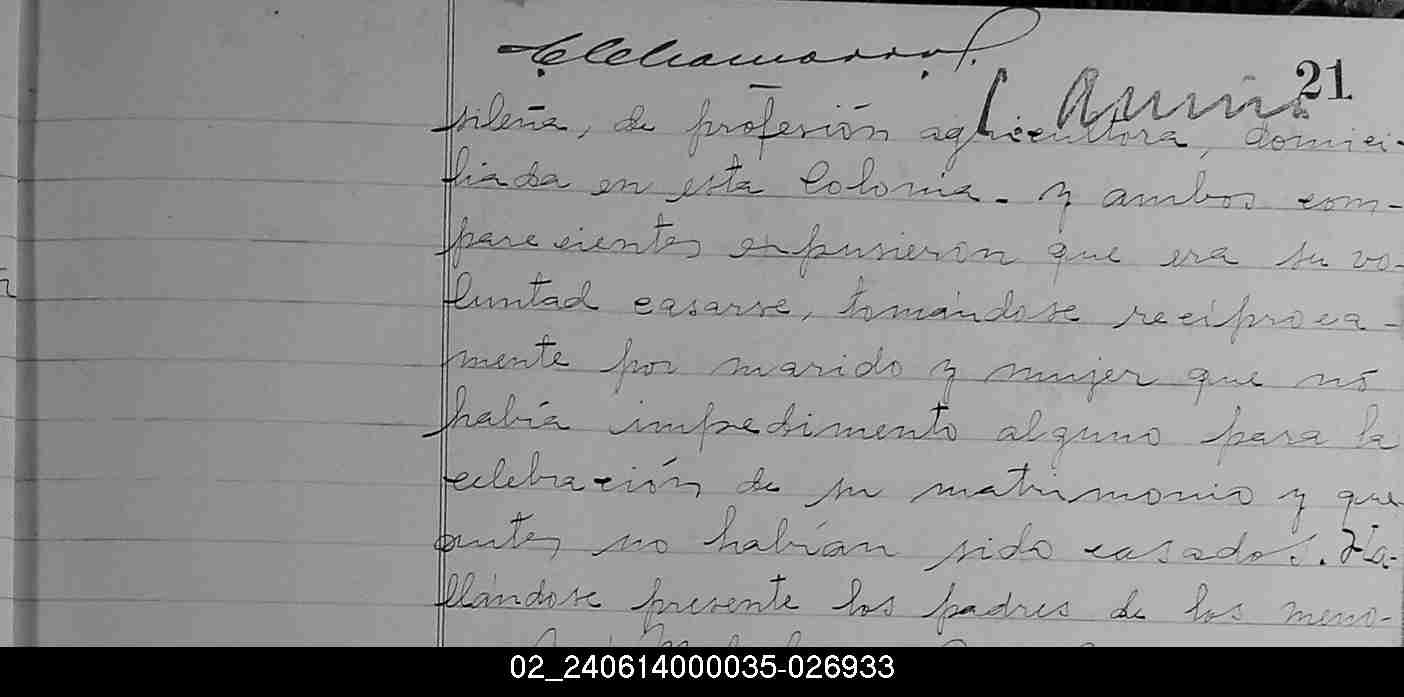 21
sileña, de profesión agricultora, domici-
liada en esta Colonia. y ambos com-
parecientes expusieron que era su vo-
luntad casarse, tomándose recíproca-
mente por marido y mujer que nó
había impedimento alguno para la
celebración de su matrimonio y que
antes no habían sido casados. Ha-
llándose presente los padres de los meno-
02_240614000035-026933